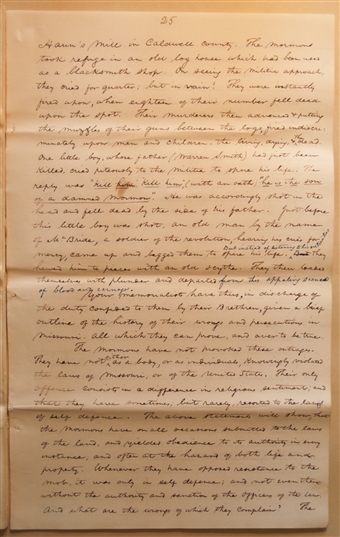 25
Haun's Mill in Caldwell county. The Mormons
took refuge in an old log house which had been used
as a blacksmith shop. On seeing the militia approach
they cried for quarter, but in vain! They were instantly
fired upon, when eighteen of their number fell dead
upon the spot. Their murderers then advanced & putting
the muzzles of their guns between the logs, fired indiscrim-
inately upon men and children, the living, dying, & the dead.
One little boy, whose father (Warren Smith) had just been
killed, cried piteously to the militia to spare his life. The
reply was "Kill him, Kill him" (with an oath) "he is the son
of a damned Mormon". He was accordingly shot in the
head and fell dead by the side of his father. Just before
this little boy was shot, an old man by the name
of McBride, a soldier of the revolution, hearing his cries for
mercy, came up and begged them to spare his life. But instead of they
hewed him to pieces with an old scythe. They then loaded
themselves with plunder and departed from this appalling scene
of blood and carnage.
Your memorialists have thus, in discharge of
the duty confided to them by their Brethren, given a brief
outline of the history of their wrongs and persecutions in
Missouri. All which they can prove, and aver to be true.
The Mormons have not provoked these outrages.
They have not either as a body, or as individuals knowingly violated
the laws of Missouri, or of the United States. Their only
offence consists in a difference in religious sentiment, and
that they have sometimes, but rarely, resorted to the laws
of self defence. The above statement will show that
the Mormons have on all occasions submitted to the laws
of the land, and yielded obedience to its authority in every
instance, and often at the hazard of both life and
property. Whenever they have opposed resistance to the
mob, it was only in self defence; and not even then
without the authority and sanction of the officers of the law.
And what are the wrongs of which they complain? The